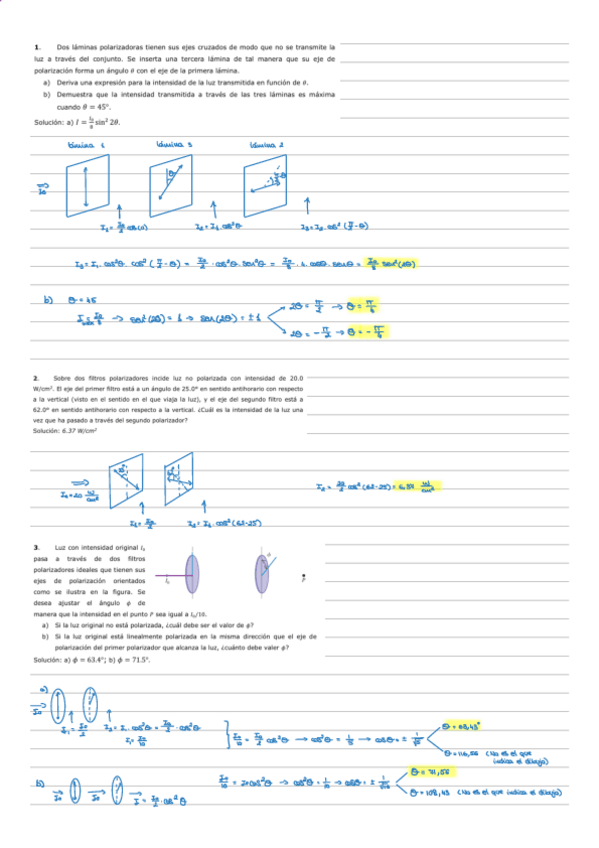 1. Dos láminas polarizadoras tienen sus ejes cruzados de modo que no se transmite la
luz a través del conjunto. Se inserta una tercera lámina de tal manera que su eje de
polarización forma un ángulo θ con el eje de la primera lámina.
a) Deriva una expresión para la intensidad de la luz transmitida en función de θ.
b) Demuestra que la intensidad transmitida a través de las tres láminas es máxima
cuando θ = 45°.
Solución: a) I = I₀/8 sin² 2θ.
lámina 1 lámina 3 lámina 2
θ
I₀
I₁ = I₀/2 cos(0) I₂ = I₁ . cos²θ I₃ = I₂ . cos² (π/2 - θ)
I₃ = I₁ . cos²θ . cos² (π/2 - θ) = I₀/2 . cos²θ . sen²θ = I₀/8 . 4 . cosθ . senθ = I₀/8 sen²(2θ)
b) θ = 45
sen²(2θ) = 1 → sen(2θ) = ±1
2θ = π/2 → θ = π/4
2θ = -π/2 → θ = -π/4
2. Sobre dos filtros polarizadores incide luz no polarizada con intensidad de 20.0
W/cm². El eje del primer filtro está a un ángulo de 25.0° en sentido antihorario con respecto
a la vertical (visto en el sentido en el que viaja la luz), y el eje del segundo filtro está a
62.0° en sentido antihorario con respecto a la vertical. ¿Cuál es la intensidad de la luz una
vez que ha pasado a través del segundo polarizador?
Solución: 6.37 W/cm²
I₀ = 20 W/cm²
I₂ = 20/2 cos² (62-25) = 6.37 W/cm²
I₁ = I₀/2 I₂ = I₁ . cos² (62-25)
3. Luz con intensidad original I₀
pasa a través de dos filtros
polarizadores ideales que tienen sus
ejes de polarización orientados
como se ilustra en la figura. Se
desea ajustar el ángulo ϕ de
manera que la intensidad en el punto P sea igual a I₀/10.
I₀
P
a) Si la luz original no está polarizada, ¿cuál debe ser el valor de ϕ?
b) Si la luz original está linealmente polarizada en la misma dirección que el eje de
polarización del primer polarizador que alcanza la luz, ¿cuánto debe valer ϕ?
Solución: a) ϕ = 63.4°; b) ϕ = 71.5°.
a)
I₀
I₁ = I₀/2 I₂ = I₁ . cos²θ = I₀/2 . cos²θ
I₂ = I₀/10
I₀/10 = I₀/2 cos²θ → cos²θ = 1/5 → cosθ = ± 1/√5
θ = 63,43°
θ = 116,56 (No es el que
indica el dibujo)
b)
I₀ I₀ I = I₀ . cos²θ
I₀/10 = I₀ cos²θ → cos²θ = 1/10 → cosθ = ± 1/√10
θ = 71,56
θ = 108,43 (No es el que indica el dibujo)